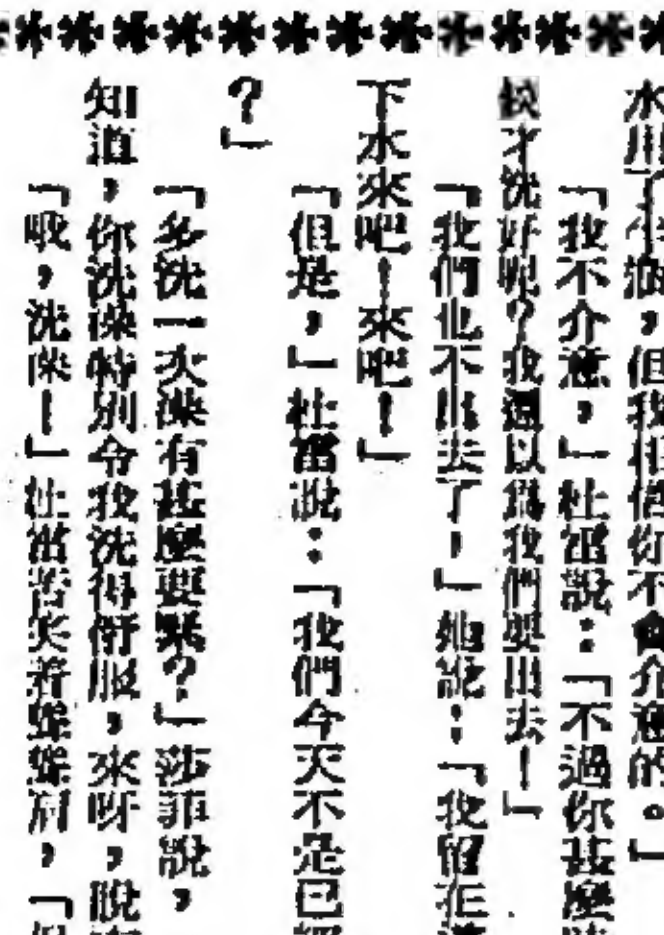 水用了生油,但我相信你不會介意的。」
「我不介意,」杜雷說:「不過你甚麼
才洗好呢?我還以爲我們要出去!」
「我們也不出去了!」她說:「我留在
下水來吧!來吧!」
「但是,」杜雷說:「我們今天不是已經
?」
「多洗一次澡有甚麼要緊?」莎菲說,
知道,你洗澡特別令我洗得舒服,來呀,脫
「哦,洗澡!」杜雷苦笑着聳聳肩,「但